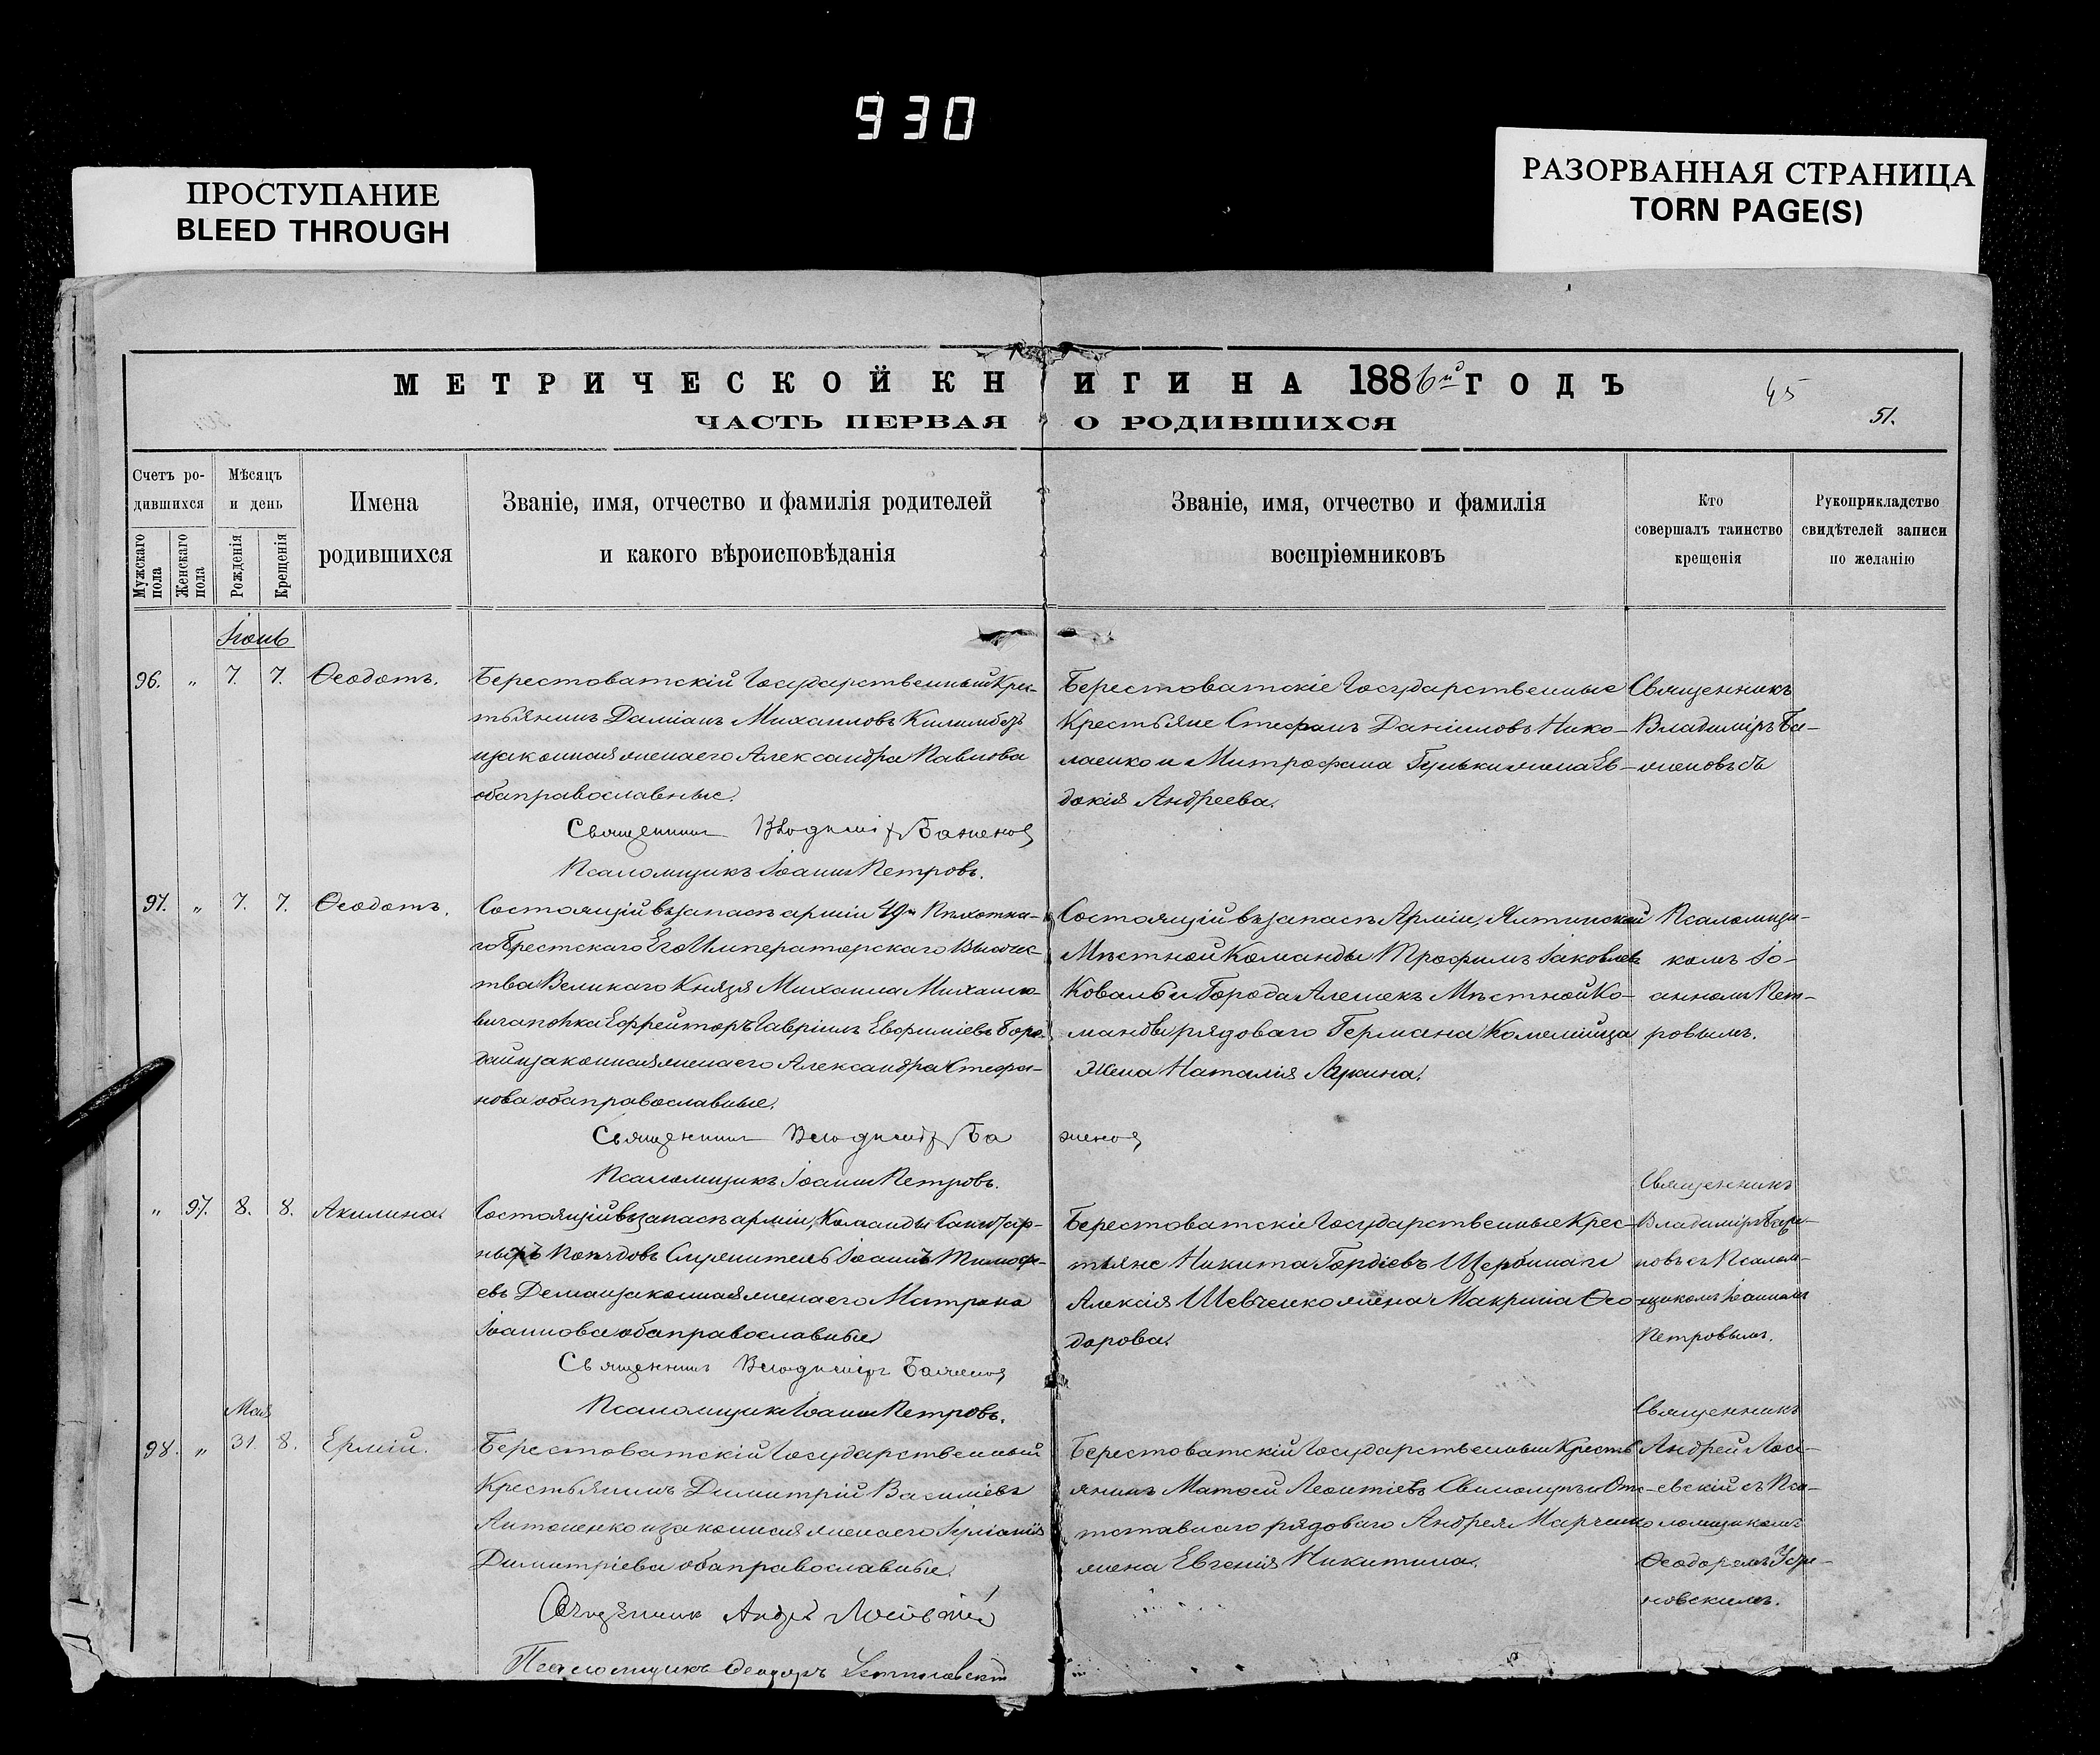 930
ПРОСТУПАНИЕ
BLEED THROUGH
РАЗОРВАННАЯ СТРАНИЦА
TORN PAGE(S)
МЕТРИЧЕСКОЙ КНИГИ НА 1886й ГОДЪ
45
ЧАСТЬ ПЕРВАЯ О РОДИВШИХСЯ
51.
Счетъ ро-
дившихся
Мужскаго пола
Женскаго пола
Мѣсяцъ
и день
Рожденія
Крещенія
Имена
родившихся
Званіе, имя, отчество и фамилія родителей
и какого вѣроисповѣданія
Званіе, имя, отчество и фамилія
воспріемниковъ
Кто
совершалъ таинство
крещенія
Рукоприкладство
свидѣтелей записи
по желанію
Іюнь
96. " 7. 7. Ѳеодотъ.
Берестоватскій Государственный Крес-
тьянинъ Даміанъ Михаиловъ
изаконная жена его Александра Павлова
оба православные.
Священник Владимір Баженов
Псаломщикъ Іоаннъ Петровъ.
Берестоватскіе Государственные
Крестьяне Стефанъ Даніиловъ Нико-
лаенко и Митрофана жена Ев-
докія Андреева.
Священникъ
Владиміръ Ба-
женовъ
97. " 7. 7. Ѳеодотъ.
Состоящій въ запасѣ арміи 49го Пѣхотна-
го Брестскаго Его Императорскаго Высочес-
тва Великаго Князя Михаила Михаило-
вича полка Ефрейторъ Гавріилъ Евфиміевъ Боро-
дай изаконная жена его Александра Стефа-
нова оба православные.
Священник Владимір Баженов
Псаломщикъ Іоаннъ Петровъ.
Состоящій въ запасѣ Арміи, Ялтинской
Мѣстной Команды Трофимъ Іаковлевъ
Коваль и Города Алешекъ Мѣстной Ко-
манды рядоваго Германа
Жена Наталія Лукина.
Псаломщи-
комъ Іо-
анномъ Пет-
ровымъ.
" 97. 8. 8. Акилина.
Состоящій въ запасѣ арміи, Команды Санитар-
ныхъ Поѣздовъ Служитель Іоаннъ Тимофе-
евъ изаконная жена его Матрона
Іоаннова оба православные
Священник Владимір Баженов
Псаломщикъ Іоаннъ Петровъ.
Берестоватскіе Государственные Крес-
тьяне Никита Гордіевъ Щербина и
Алексія Шевченко жена Макрина Ѳео-
дорова.
Священникъ
Владиміръ Баже-
новъ съ Псалом-
щикомъ Іоанномъ
Петровымъ.
Мая
98. " 31. 8. Ермій.
Берестоватскій Государственный
Крестьянинъ Димитрій Василіевъ
Антоненко изаконная жена его Іуліанія
Димитріева оба православные.
Священник Андрей
Псаломщикъ Ѳеодоръ
Берестоватскій Государственный Кресть-
янинъ Матѳей Леонтіевъ и От-
тставнаго рядоваго Андрея Марченко
жена Евгенія Никитина.
Священникъ
Андрей Лосі-
евскій съ Пса-
ломщикомъ
Ѳеодоромъ
новскимъ.